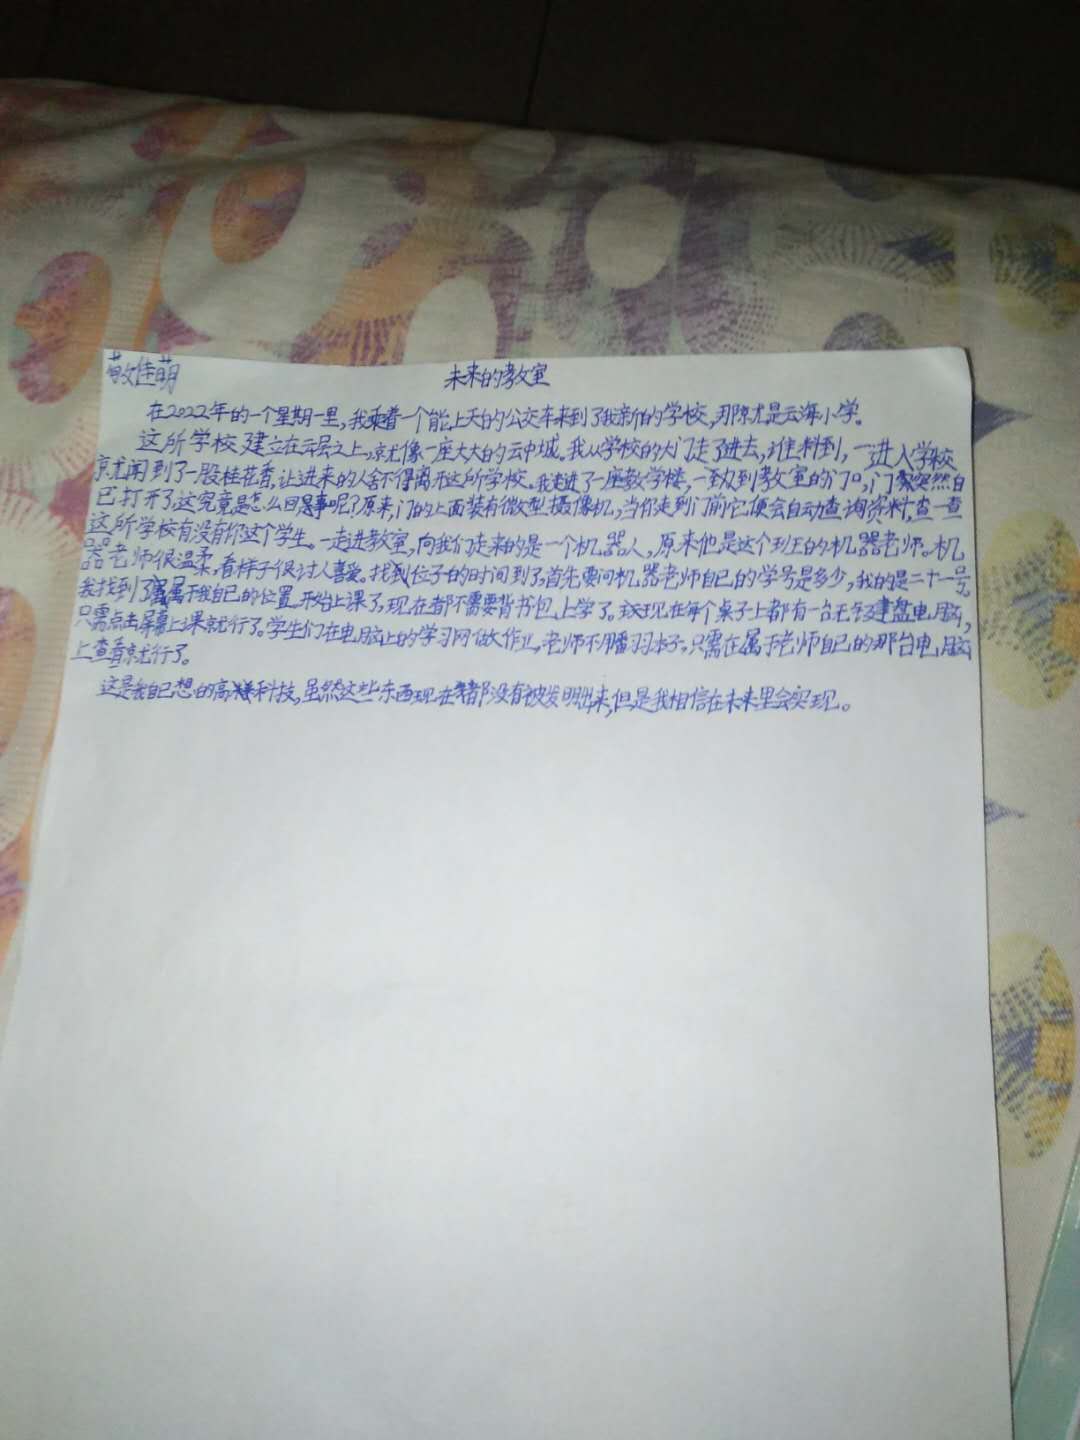 敬佳萌
未来的教室
在2022年的一个星期一里，我乘着一个能上天的公交车来到了我新的学校，那就是云海小学。
这所学校建立在云层之上，就像一座大大的云中城。我从学校的大门走了进去，谁料到，一进入学校
就闻到了一股桂花香，让进来的人舍不得离开这所学校。我走进了一座教学楼，一到教室的门口，门突然自
己打开了，这究竟是怎么回事呢？原来，门的上面装有微型摄像机，当你走到门前，它便会自动查询资料，查一查
这所学校有没有你这个学生。一走进教室，向我们走来的是一个机器人，原来他是这个班的机器老师。机
器老师很温柔，看样子很讨人喜爱。找到位子的时间到了，首先要问机器老师自己的学号是多少，我的是二十一号。
我找到了属于我自己的位置。开始上课了，现在都不需要背书包上学了。现在每个桌子上都有一台无建盘电脑，
只需点击屏幕上课就行了。学生们在电脑上的学习网做作业，老师不用翻本子，只需在属于老师自己的那台电脑
上查看就行了。
这是我自己想的高科技，虽然这些东西现在都没有被发明出来，但是我相信在未来里会实现。